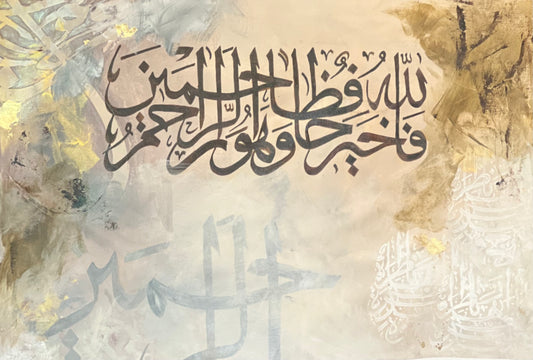 فالله خير حافظا وهو أرحم الراحمين
الراحمين